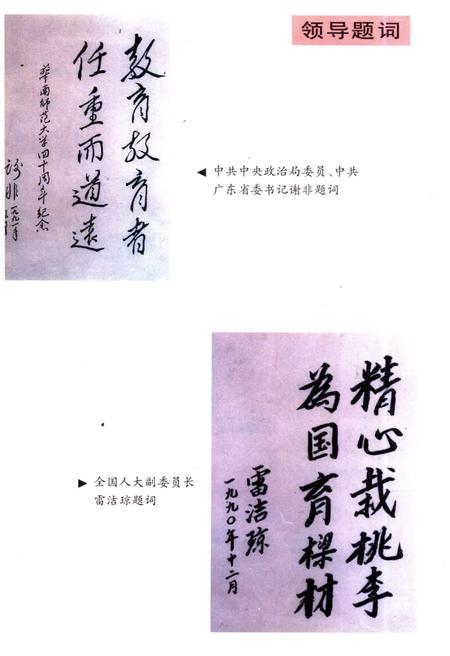 领导题词
教育教育者
任重而道远
华南师范大学四十周年纪念
谢非
一九九一年
◀ 中共中央政治局委员、中共
广东省委书记谢非题词
精心栽桃李
為国育樑材
雷洁琼
一九九〇年十二月
▶ 全国人大副委员长
雷洁琼题词